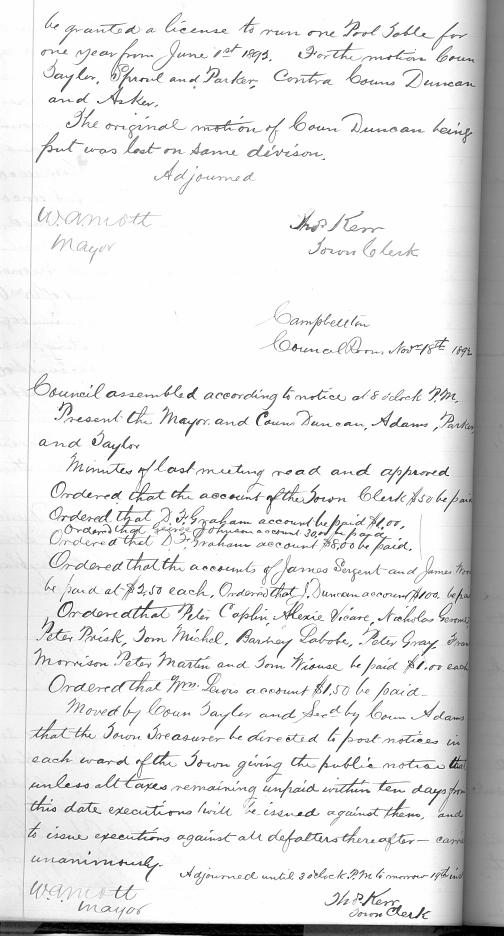 be granted a license to run one Pool Table for
one year from June 1st 1893. For the motion Coun
Taylor, Sproul and Parker, Contra Couns Duncan
and Asker.
The original motion of Coun Duncan being
put was lost on same divison.
Adjourned
W.A. Mott
Mayor
Thos Kerr
Town Clerk
Campbellton
Council Room Novr 18th 1892
Council assembled according to notice at 8 oclock P.M.
Present the Mayor and Couns Duncan, Adams, Parker
and Taylor
Minutes of last meeting read and approved
Ordered that the account of the Town Clerk $50 be paid
Ordered that D.F. Graham account be paid $1.00.
Ordered that George account 30.00 be paid
Ordered that D.F. Graham account $8.00 be paid.
Ordered that the accounts of James Sergent and James
be paid at $2.50 each, Ordered that J. Duncan account $100. be paid
Ordered that Peter Caplin Alexie Vicare, Nicholas
Peter Prisk, Tom Michel, Barney Labobe, Peter Gray
Morrison Peter Martin and Tom be paid $1.00 each
Ordered that Wm. Lewis account $1.50 be paid
Moved by Coun Taylor and Secd by Coun Adams
that the Town Treasurer be directed to post notices in
each ward of the Town giving the public notice that
unless all taxes remaining unpaid within ten days from
this date executions will be issued against them, and
to issue executions against all defalters thereafter —
unanimously.
Adjourned until 3 oclock P.M. to morrow 19th inst
W.A. Mott
Mayor
Thos Kerr
Town Clerk